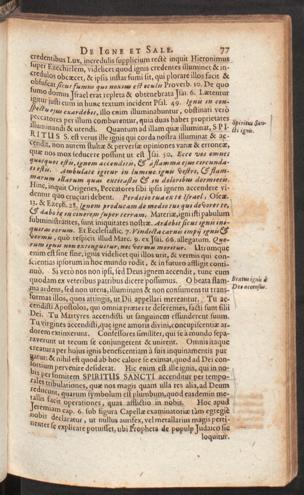 DE IGNE ET SALE. 77
credentibus Lux, incredulis supplicium rectè inquit Hieronimus
super Ezechielem, videlicet quod ignis credentes illuminet & in-
credulos obcæcet, & ipsa iustas fumi sit, qui plorare illos facit &
obfuscat sicut fumus qui noxius est oculis Proverb. 10. De quo
fumo domus Israel eras repleta & obtenebrata Jsai. 6. Lætentur
igitur justi cum in hunc textum incident Psal. 49. Ignis in con-
spectu ejus exardebit, illo enim illuminabuntur, obstinati verò
peccatores per illum comburentur, quia duas habet proprietates
illuminandi & urendi. Quantum ad illam quæ illuminat, SPI-
RITUS S. est verus ille ignis qui corda nostra illuminat & ac-
cendit, non autem stultæ & perversæ opiniones vanæ & erroneæ,
quæ nos mox seducere possunt ut est Jsa. 50. Ecce vos omnes
quotquot estis, ignem accenditis, & flamma ejus circunda-
ti estis. Ambulate igitur in lumine ignis vestri, & flam-
marum illarum quas excitastis & in doloribus dormietis.
Hinc, inquit Origenes, Peccatores sibi ipsis ignem accendere vi-
dentur quo cruciari debent. Perditio tua ex te Israel, Oseæ.
13. & Ezech. 28. Ignem producam de medio tui qui devoret te,
& dabo te in cinerem super terram. Materiæ, igni isti pabulum
subministrantes, sunt iniquitates nostræ. Ardebit sicut ignis ini-
quitas eorum. Et Ecclesiastic. 7. Vindicta carnis impij ignis &
vermis, quò respicit illud Marc. 9. ex Jsai. 66. allegatum. Quo-
rum ignis non extinguetur, nec vermis morietur. Utrumque
enim est sine fine, ignis videlicet qui illos urit, & vermis qui con-
scientias ipsorum in hoc mundo rodit, & in futuro affliget conti-
nuò. Si verò nos non ipsi, sed Deus ignem accendit, tunc cum
quodam ex veteribus patribus dicere possumus. O beata flam-
ma ardens, sed non urens, illuminans & non consumens tu trans-
formas illos, quos attingis, ut Dij appellari mereantur. Tu ac-
cendisti Apostolos, qui omnia præter te deserentes, facti sunt filii
Dei. Tu Martyres accendisti ut sanguinem effunderent suum.
Tu virgines accendisti, quæ igne amoris divini, concupiscentiæ ar-
dorem extinxerunt. Confessores similiter, qui se à mundo sepa-
raverunt ut tecum se conjungerent & unirent. Omnis itaque
creatura per hujus ignis beneficentiam à suis inquinamentis pur-
gatur; & nihil est quod ab hoc calore se eximat, quod ad Dei con-
sortium pervenire desiderat. Hic enim est ille ignis, qui in no-
bis per flammam SPIRITUS SANCTI accenditur per tempo-
rales tribulationes, quæ nos magis quam ulla res alia, ad Deum
reducunt, quarum symbolum est plumbum, quod easdem in me-
tallis facit operationes, quas afflictio in nobis. Hoc apud
Jeremiam cap. 6. sub figura Capellæ examinatoriæ tàm egregiè
nobis declaratur, ut nullus aurifex, vel metallarius magis perti-
nenter se explicare potuisset, ubi Propheta de populo Judaico sic
loquitur.
Spiritus San-
cti ignis.
Beatus ignis à
Deo accensus.